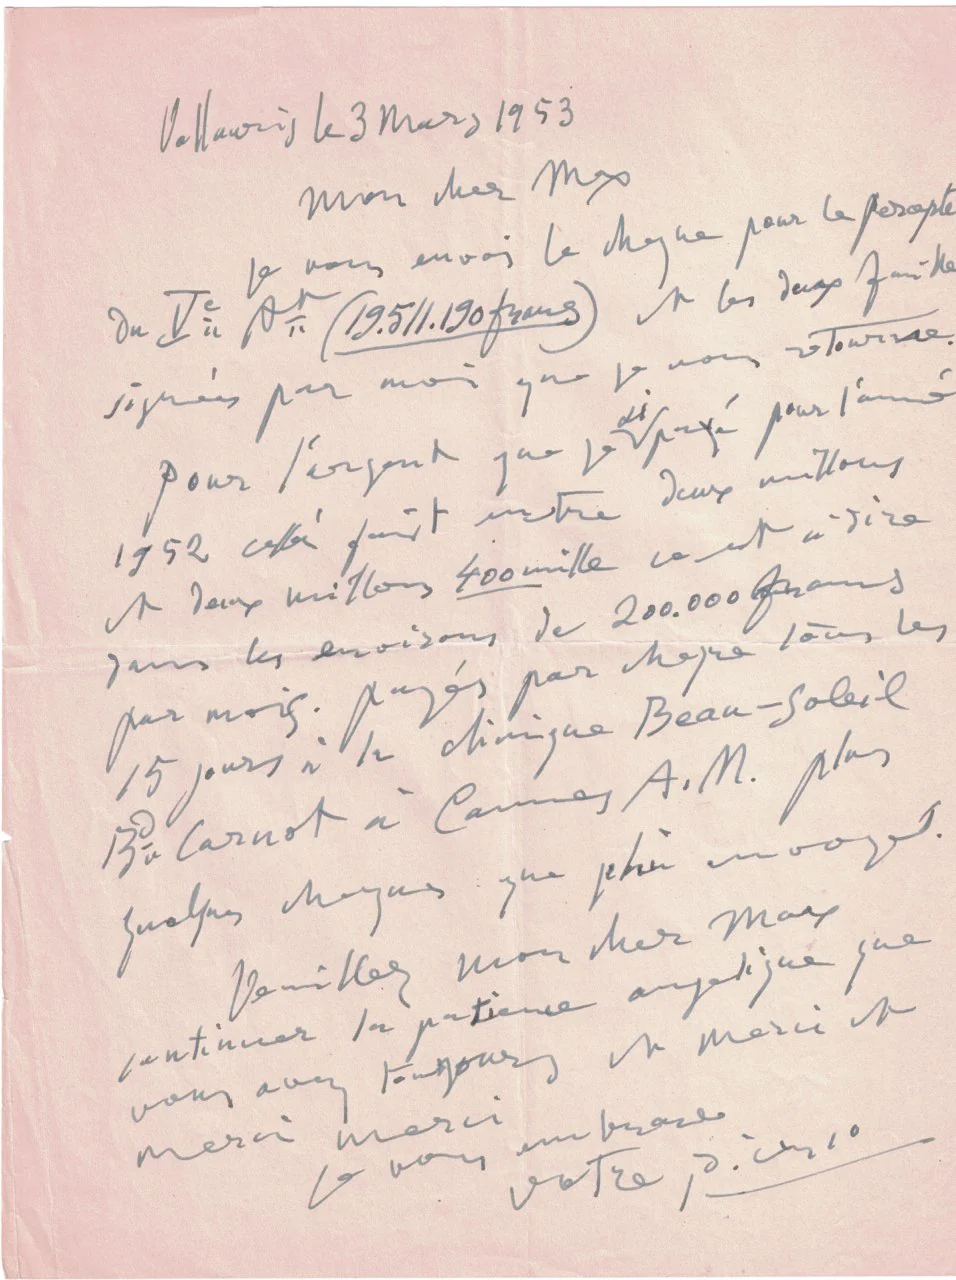 Vallauris le 3 Mars 1953
Mon cher Max
je vous envois le cheque pour le percepte
du Ve Art (19.511.190 francs) et les deux feuille
signées par moi que je vous retourne.
Pour l'argent que je ai payé pour l'anné
1952 cella fait entre deux millons
et deux millons 400 mille ce est à dire
dans les environs de 200.000 francs
par mois. payés par cheque tous les
15 jours à la clinique Beau-Soleil
Bd Carnot à Cannes A.M. plus
quelques cheques que envoyet.
Veuillez mon cher Max
continuer la patience angelique que
vous avez toujours et merci et
merci merci
je vous embrasse
votre Picasso